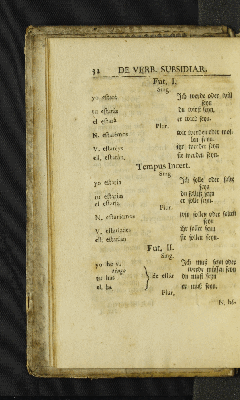 32 DE VERB. SUBSIDIAR.
Fut. I.
Sing.
yo estarà Ich werde oder will
seyn
tu estaràs du wirst seyn,
el estarà er wird seyn.
Plur.
N. estarémos wir werden oder wol-
len seyn.
V. estareis ihr werdet seyn
ell. estaràn, sie werden seyn.
Tempus Incert.
Sing.
yo estaria Ich solle oder
seyn
tu estarias du sollest seyn
el estaria er solle seyn.
Plur.
N. estariamos wir sollen oder
seyn
V. estariades ihr sollet seyn
ell. estarian sie sollen seyn.
Fut. II.
Sing.
yo he v. Ich muß seyn oder
tengo werde müssen seyn
tu has de estar du must seyn
el ha er muß seyn.
Plur.